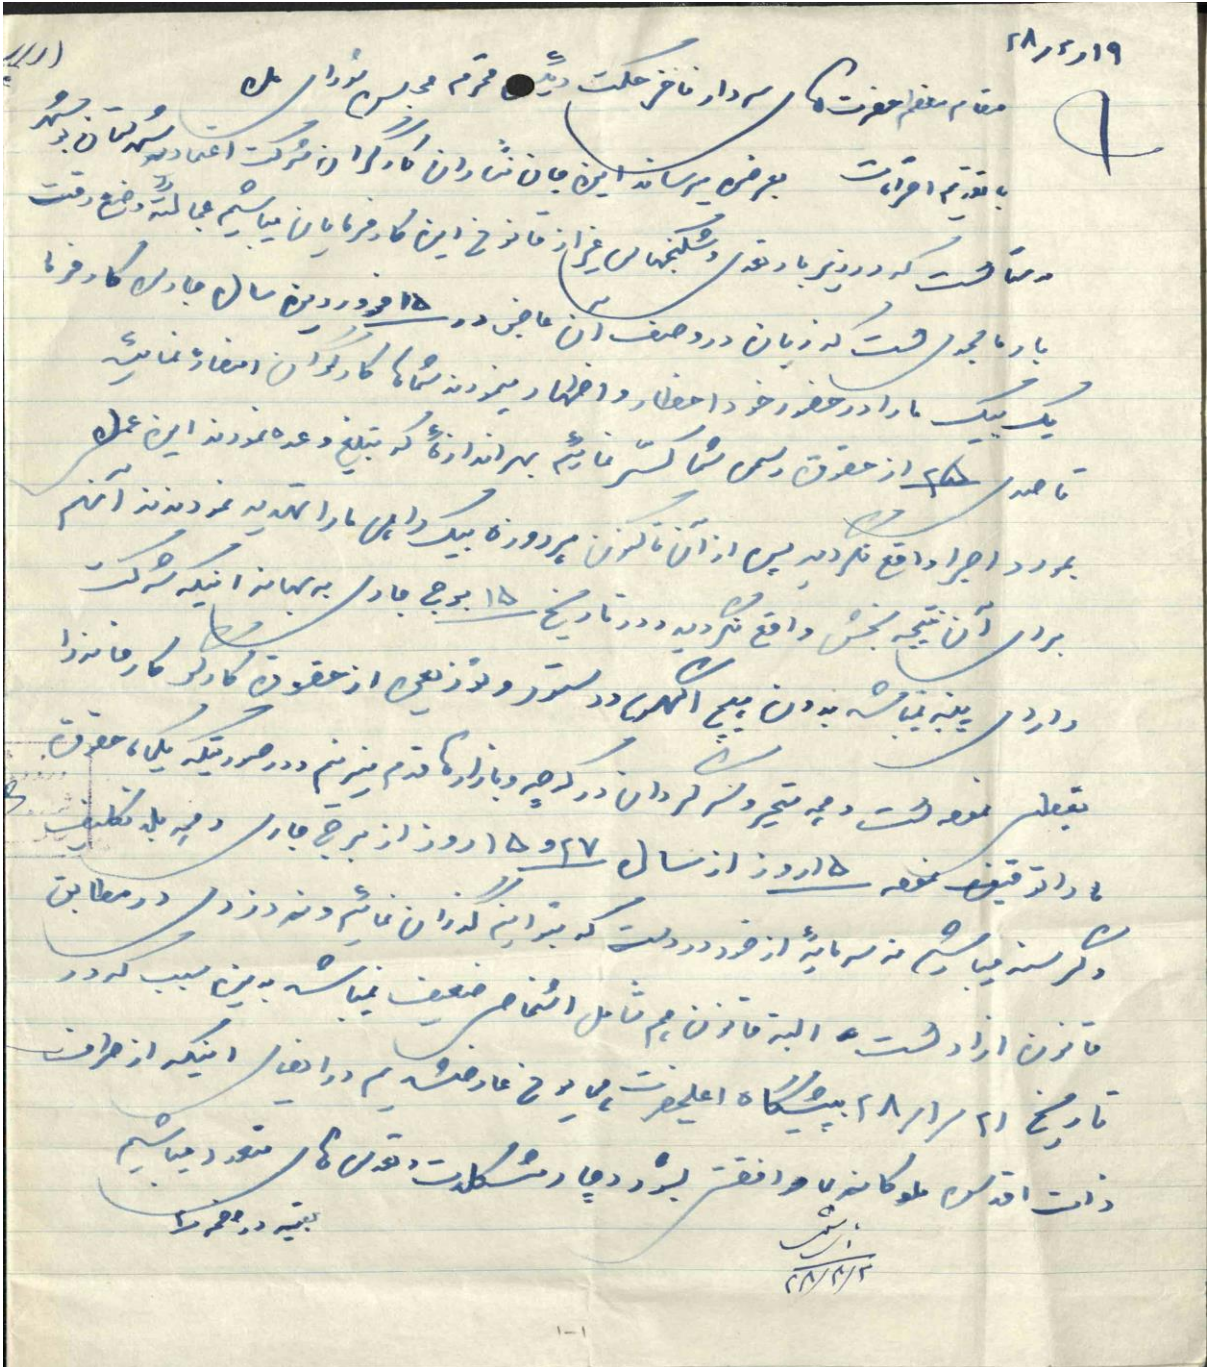 ۲۸/۲/۱۹
مقام معظم حضرت آقای سردار فاخر حکمت محترم مجلس شورای ملی
با تقدیم احترامات بعرض میرساند این جان نثاران کارگران شرکت اعتمادیه بوشهر
مدتی است که در زیر بار تعدی و شکنجهای غیر از قانونی این کارفرمایان میباشیم وضع رقت
بار ما است که زبان در وصف آن عاجز در ۱۵ فروردین سال جاری کارفرما
یک بیک ما را در حضور خود احضار و اظهار مینمودند شماها کارگران امضاء نمائید
تا صدی ۲۵ از حقوق رسمی شما کسر نمائیم بهر اندازه که تبلیغ و عده نمودند این عمل
بمورد اجرا واقع نگردید پس از آن تاکنون هر روزه ما را تهدید نمودند آنهم
برای آن نتیجه بخش واقع نگردید و در تاریخ ۱۵ برج جاری به بهانه اینکه شرکت
دارای پنبه نمیباشد بدون هیچ آگهی و دستور و از حقوق کارگر کارخانه را
تعطیل نموده است و همه متحیر و سرگردان در کوچه و بازارها قدم میزنیم و در صورتیکه یکماه حقوق
ما را توقیف نموده ۱۵ روز از سال ۲۷ و ۱۵ روز از برج جاری و همه بلا تکلیف
و گرسنه میباشیم نه سرمایه از خود در دست که بتوانیم گذران نمائیم و نه دزدی در مطابق
قانون آزاد است البته قانون هم شامل اشخاص ضعیف نمیباشد بدین سبب که در
تاریخ ۲۸/۱/۲۱ پیشگاه اعلیحضرت همایونی عارض شدیم در ازای اینکه از طرف
ذات اقدس ملوکانه با موافقت بشود دچار مشکلات و تعدی های متعدد میباشیم
بقیه در صفحه ۲
۲۸/۳/۲
۱-۱